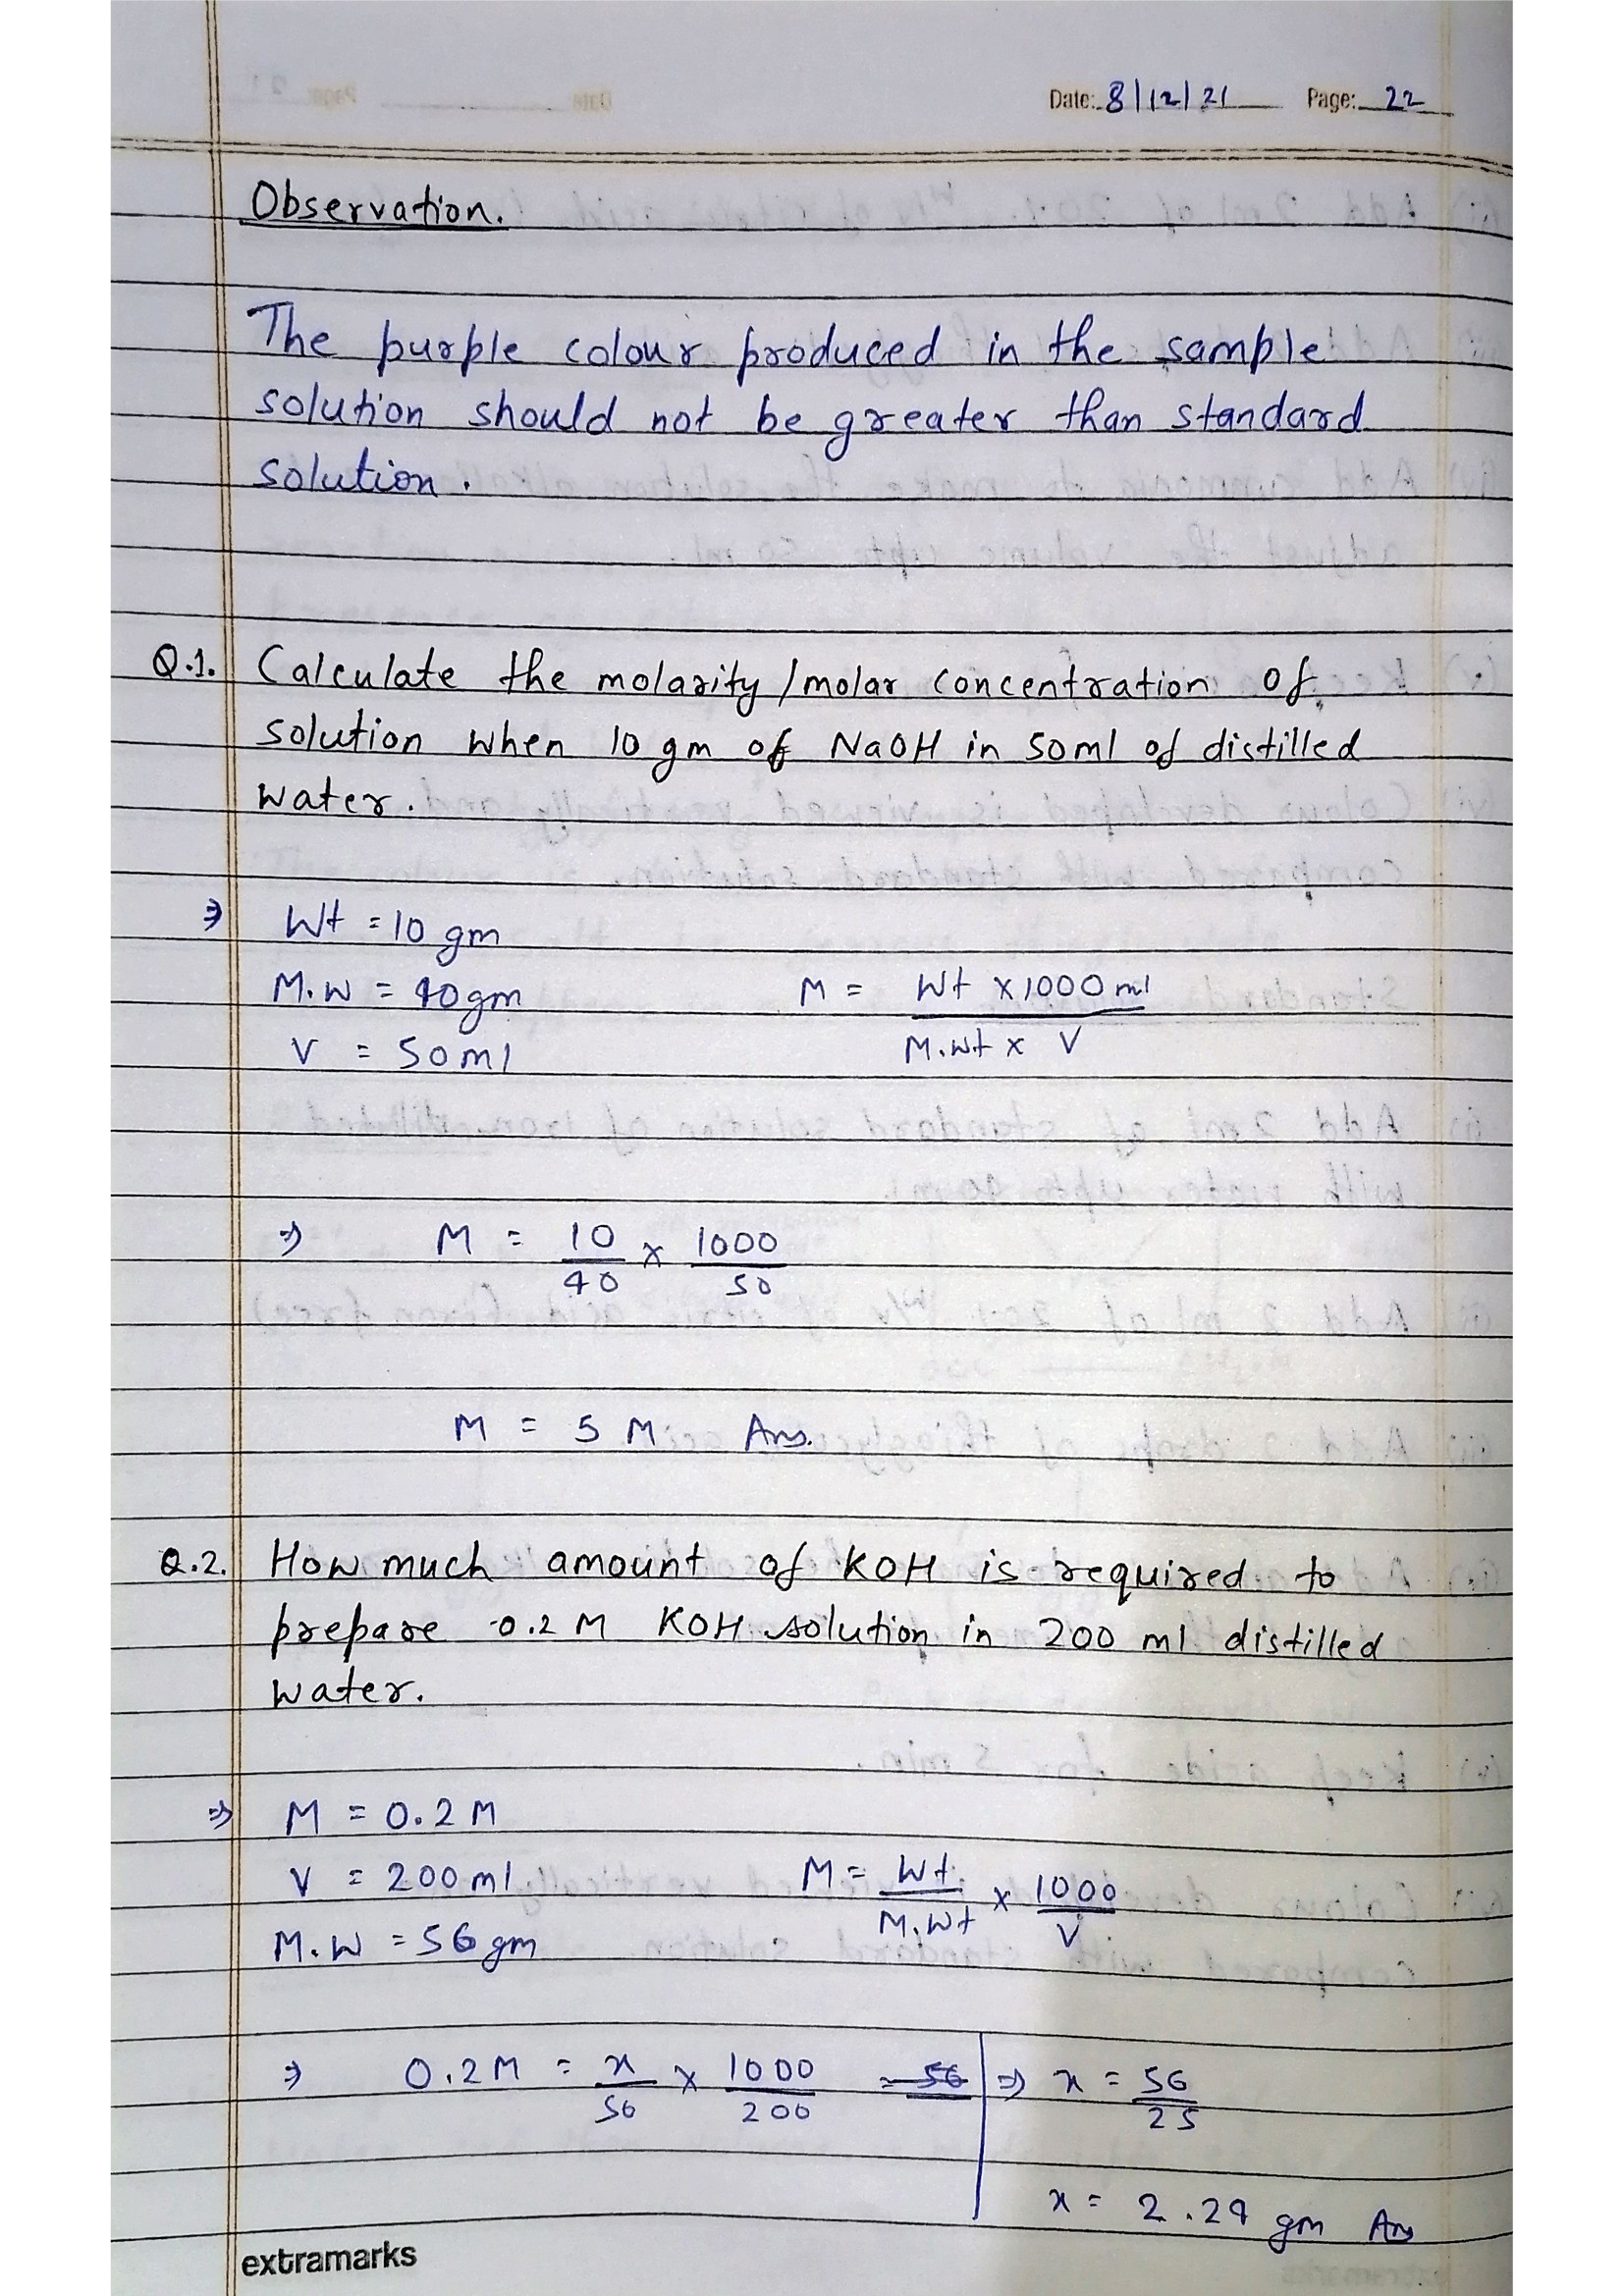 Date: 8/12/21 Page: 22
Observation.
The purple colour produced in the sample
solution should not be greater than standard
solution.
Q.1. Calculate the molarity/molar concentration of
solution when 10 gm of NaOH in 50ml of distilled
water.
⇒ Wt = 10 gm
M.W = 40gm M = Wt x 1000 ml / M.Wt x V
V = 50ml
⇒ M = 10/40 x 1000/50
M = 5 M Ans.
Q.2. How much amount of KOH is required to
prepare 0.2 M KOH solution in 200 ml distilled
water.
⇒ M = 0.2 M
V = 200ml M = Wt./M.Wt x 1000/V
M.W = 56gm
⇒ 0.2M = x/56 x 1000/200 = 56 ⇒ x = 56/25
x = 2.24 gm Ans
extramarks